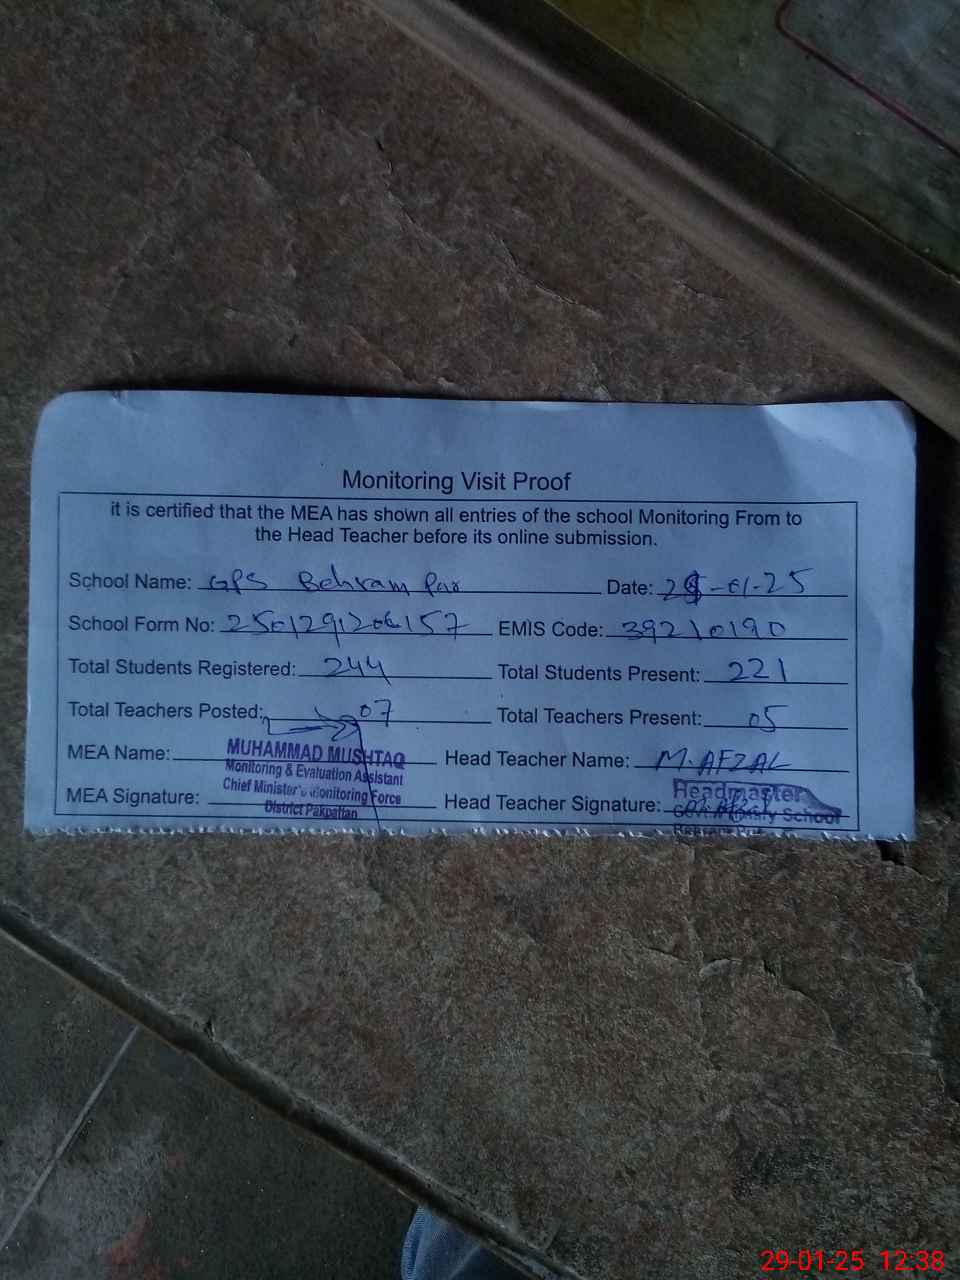 Monitoring Visit Proof
it is certified that the MEA has shown all entries of the school Monitoring From to
the Head Teacher before its online submission.
School Name: GPS Behram Pur Date: -01-25
School Form No: EMIS Code: 39210190
Total Students Registered: 244 Total Students Present: 221
Total Teachers Posted: 07 Total Teachers Present: 05
MEA Name: MUHAMMAD MUSHTAQ Head Teacher Name: M. AFZAL
Monitoring & Evaluation Assistant
Chief Minister's Monitoring Force
District Pakpattan
MEA Signature: Head Teacher Signature:
Headmaster
Govt. Primary School
29-01-25 12:38